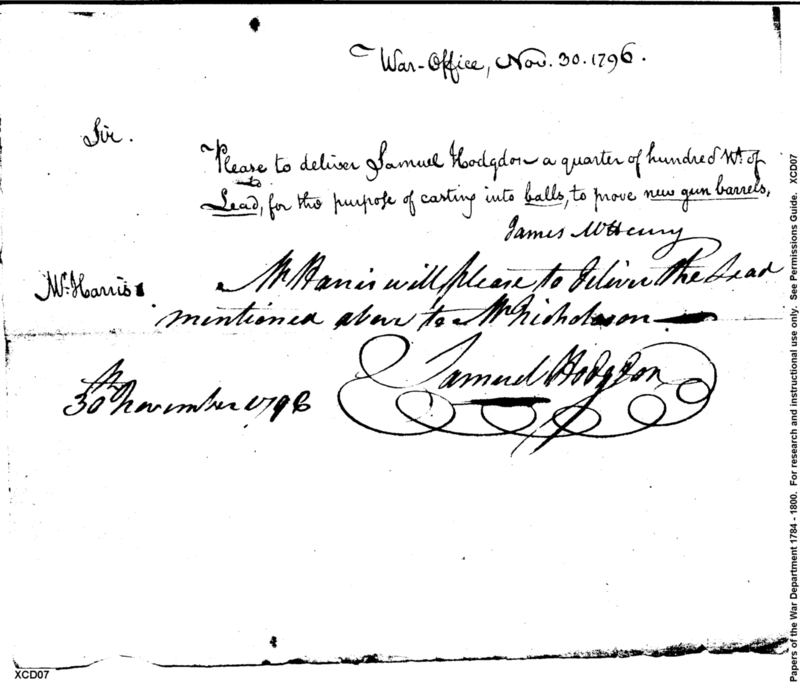 War-Office, Nov. 30. 1796.
Sir.
Please to deliver Samuel Hodgdon a quarter of hundred Wt. of
Lead, for the purpose of casting into balls, to prove new gun barrels,
James McHenry
Mr. Harris
Mr Harris will please to deliver the Lead
mentioned above to Mr Nicholson
Samuel Hodgdon
30th November 1796
XCD07
Papers of the War Department 1784 - 1800. For research and instructional use only. See Permissions Guide. XCD07